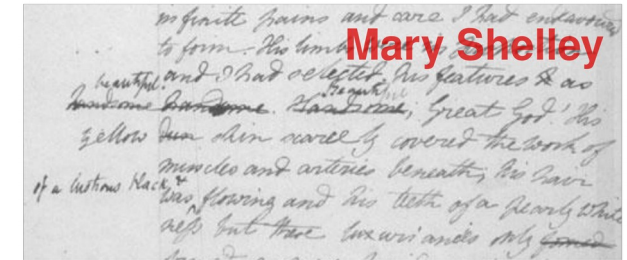 infinite pains and care I had endeavoured
Mary Shelley
to form. His limbs
beautiful
and I had selected his features & as
beautiful
handsome handsome. Handsome; Great God! His
yellow dun skin scarcely covered the work of
muscles and arteries beneath; his hair
of a lustrous black, &
was flowing and his teeth of a pearly white
ness but these luxuriancies only formed